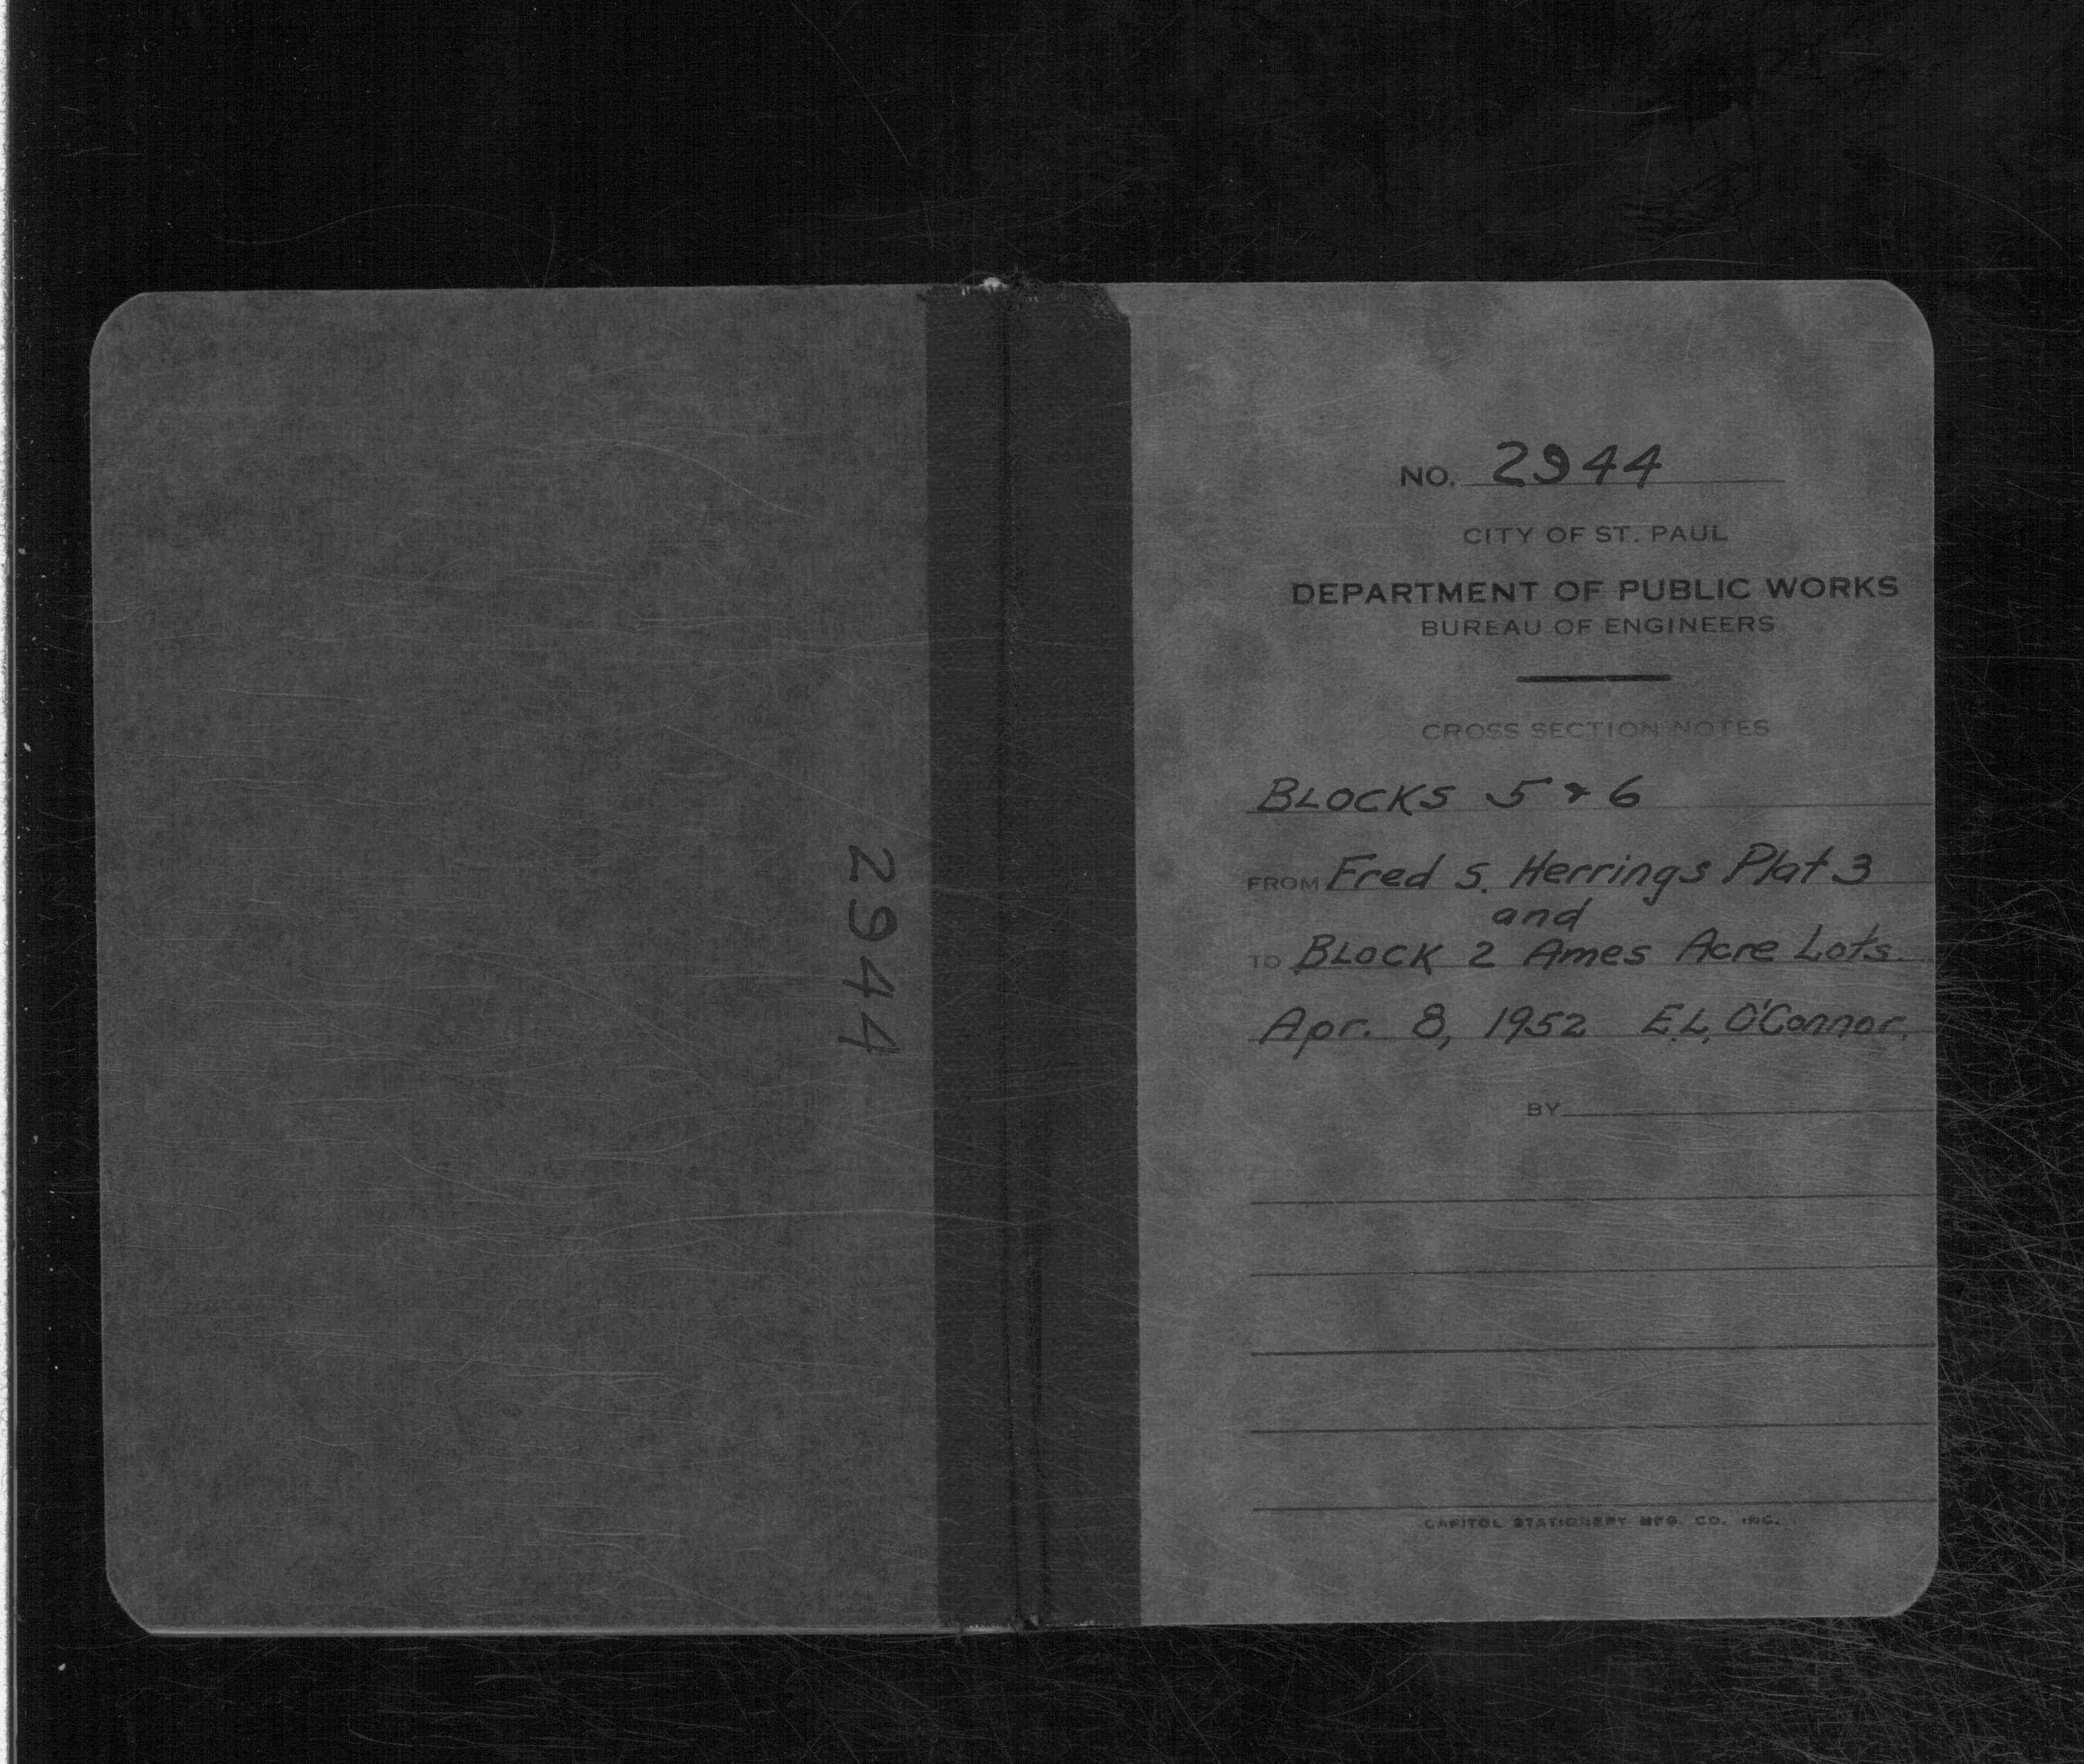 2944
NO. 2944
CITY OF ST. PAUL
DEPARTMENT OF PUBLIC WORKS
BUREAU OF ENGINEERS
CROSS SECTION NOTES
BLOCKS 5 & 6
FROM Fred S. Herrings Plat 3
and
TO BLOCK 2 Ames Acre Lots.
Apr. 8, 1952 E.L. O'Connor.
BY
CAPITOL STATIONERY MFG. CO. INC.